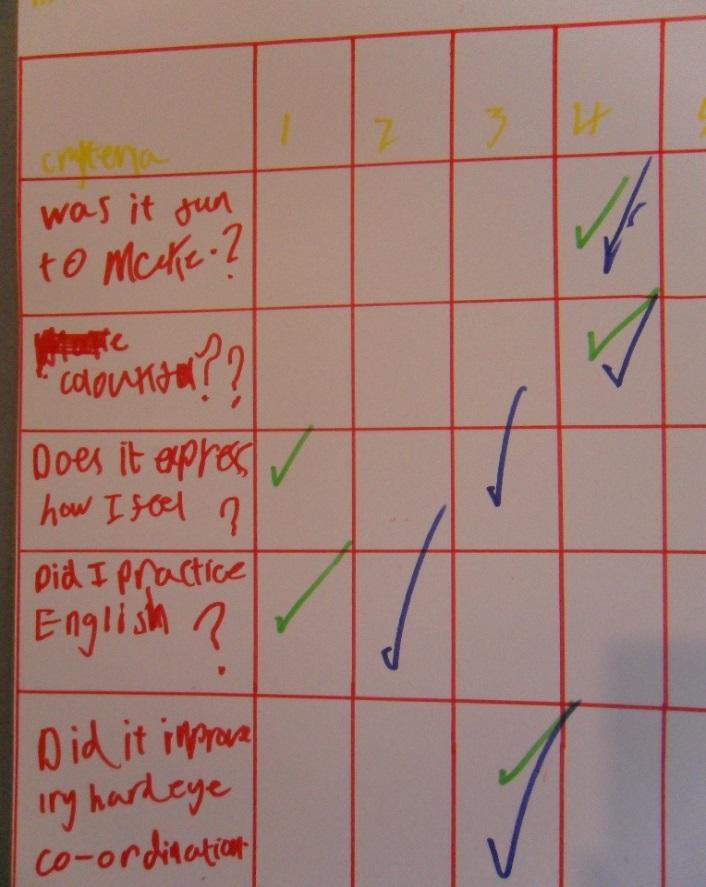 criteria 1 2 3 4 5
was it fun
to make.?
colourful??
Does it express
how I feel ?
Did I practice
English ?
Did it improve
my hand eye
co-ordination